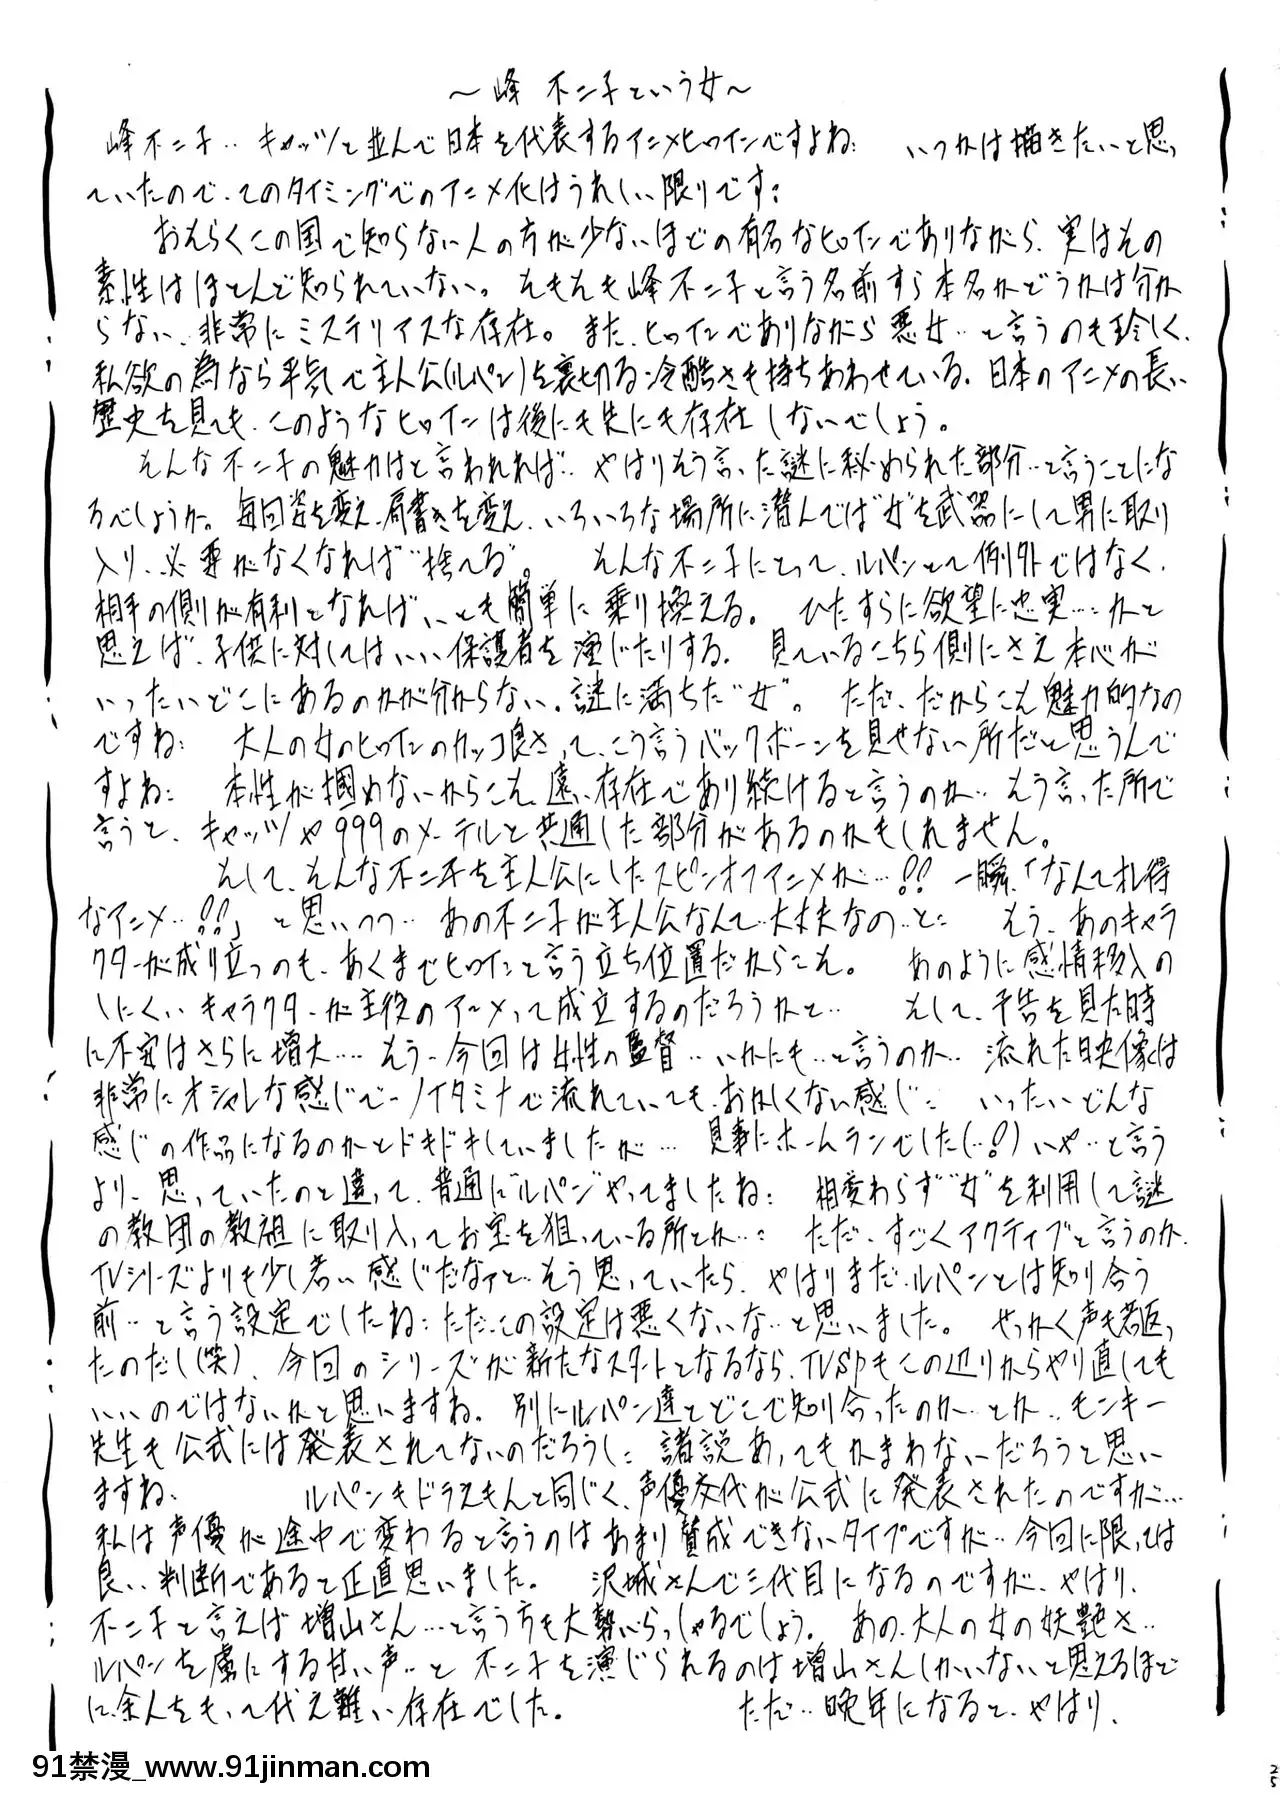 ～峰 不二子という女～
峰不二子‥キャッツと並んで日本を代表するアニメヒロインですよね: いつかは描きたいと思っ
ていたので、このタイミングでのアニメ化はうれしい限りです:
おそらくこの国で知らない人の方が少ないほどの有名なヒロインでありながら、実はその
素性はほとんど知られていない。そもそも峰不二子と言う名前すら本名かどうかは分か
らない、非常にミステリアスな存在。また、ヒロインでありながら悪女‥と言うのも珍しく、
私欲の為なら平気で主人公(ルパン)を裏切る冷酷さも持ちあわせている。日本のアニメの長い
歴史を見ても、このようなヒロインは後にも先にも存在しないでしょう。
そんな不二子の魅力はと言われれば‥やはりそう言った謎に秘められた部分‥と言うことにな
るでしょうか。毎回姿を変え、肩書きを変え、いろいろな場所に潜んでは“女”を武器にして男に取り
入り、必要がなくなれば“捨てる”。 そんな不二子にとって、ルパンとて例外ではなく、
相手の側が有利となれば、いとも簡単に乗り換える。 ひたすらに欲望に忠実…:かと
思えば、子供に対してはいい保護者を演じたりする。 見ているこちら側にさえ本心が
いったいどこにあるのかが分からない、謎に満ちた“女”。 ただ、だからこそ魅力的なの
ですね: 大人の女のヒロインのカッコ良さって、こう言うバックボーンを見せない所だと思うんで
すよね: 本性が掴めないからこそ、遠い存在であり続けると言うのか‥そう言った所で
言うと、キャッツや999のメーテルと共通した部分があるのかもしれません。
そして、そんな不二子を主人公にしたスピンオフアニメが…!! 一瞬、「なんてお得
なアニメ…!!」と思いつつ‥あの不二子が主人公なんて‥大丈夫なの‥と: もう、あのキャラ
クターが成り立つのも、あくまでヒロインと言う立ち位置だからこそ。 あのように感情移入の
しにくいキャラクターが主役のアニメって成立するのだろうかと‥ そして、予告を見た時
に不安はさらに増大‥‥もう、今回は女性の監督‥いかにも‥と言うのか‥流れた映像は
非常にオシャレな感じで、ノイタミナで流れていても、おかしくない感じ: いったいどんな
感じの作品になるのかとドキドキしていましたが…見事にホームランでした(‥!)いや‥と言う
より、思っていたのと違って、普通に“ルパン”やってましたね: 相変わらず“女”を利用して謎
の教団の教祖に取り入ってお宝を狙っている所とか‥: ただ、すごくアクティブと言うのか、
TVシリーズよりも少し若い感じだなァと‥そう思っていたら、やはりまだ、ルパンとは知り合う
前‥と言う設定でしたね:ただ、この設定は悪くないな‥と思いました。 せっかく声も若返っ
たのだし(笑)、今回のシリーズが新たなスタートとなるなら、TVSPもこの辺りからやり直しても
いいのではないかと思いますね。別にルパン達とどこで知り合ったのか‥とか‥モンキー
先生も公式には発表されてないのだろうし: 諸説あってもかまわないーだろうと思い
ますね、 ルパンもドラえもんと同じく、声優交代が公式に発表されたのですが…
私は声優が途中で変わると言うのはあまり賛成できないタイプですが‥今回に限っては
良い判断であると正直思いました。 沢城さんで三代目になるのですが、やはり、
不二子と言えば増山さん…と言う方も大勢いらっしゃるでしょう。 あの、大人の女の妖艶さ‥
ルパンを虜にする甘い声‥と不二子を演じられるのは増山さんしかいないと思えるほど
に、余人をもって代え難い存在でした。 ただ‥晩年になると、やはり、
91禁漫_www.91jinman.com
25